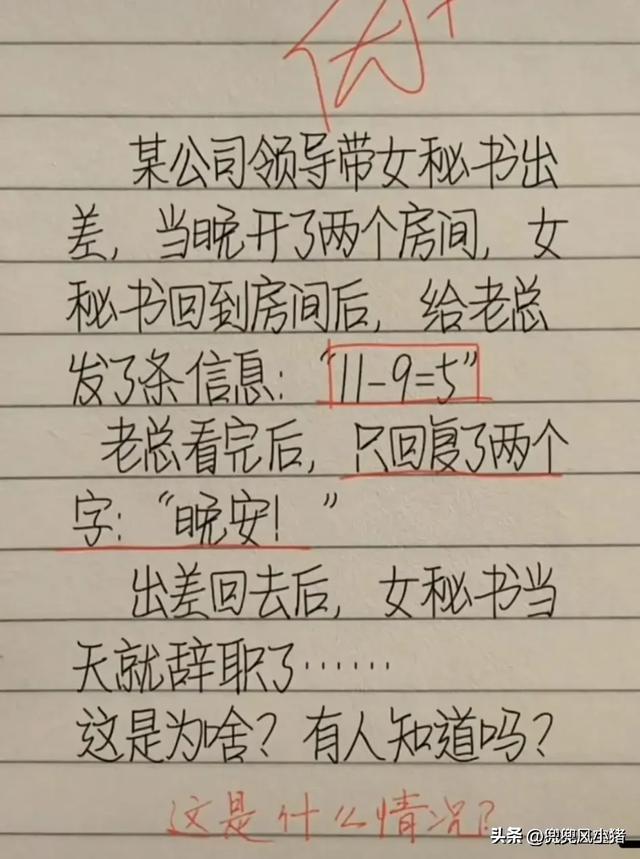 优+
某公司领导带女秘书出
差，当晚开了两个房间，女
秘书回到房间后，给老总
发了条信息：“11-9=5”
老总看完后，只回复了两个
字：“晚安！”
出差回去后，女秘书当
天就辞职了……
这是为啥？有人知道吗？
这是什么情况？
头条 @兜兜风小猪